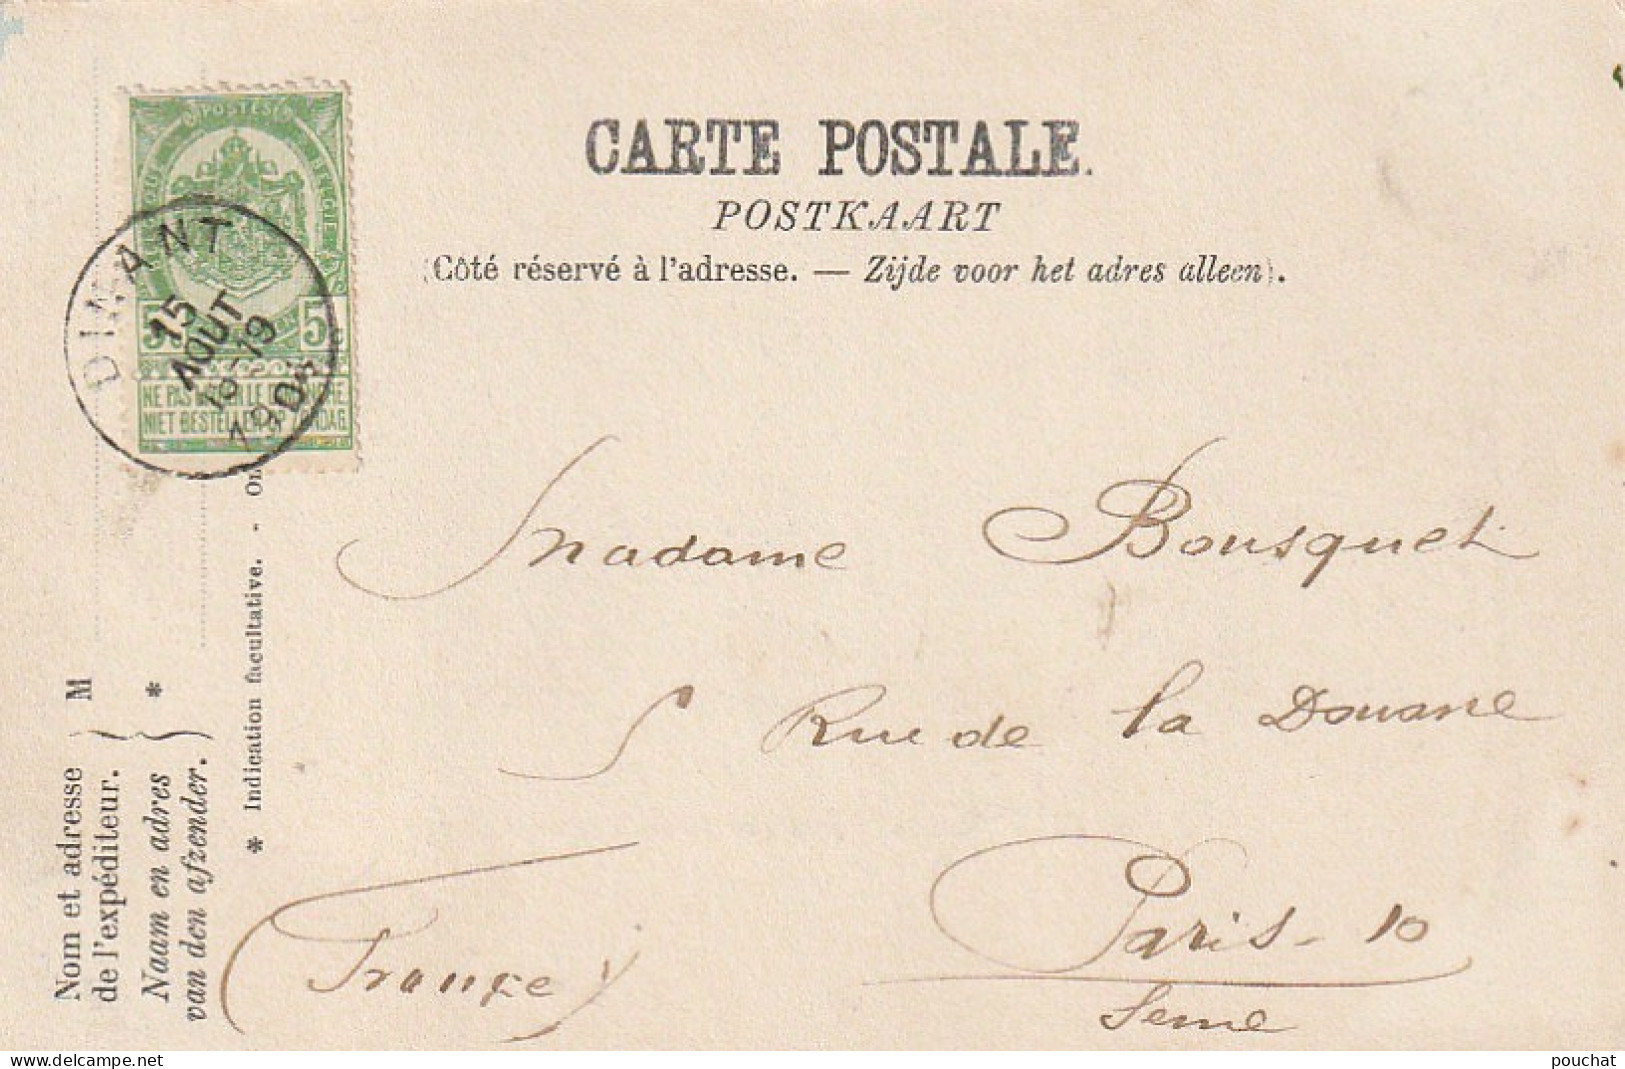 CARTE POSTALE.
POSTKAART
(Côté réservé à l'adresse. — Zijde voor het adres alleen).
POSTES
BELGIQUE
5 5
NE PAS LIVRER LE DIMANCHE
NIET BESTELLEN OP ZONDAG
DINANT
15
AOUT
18-19
Madame Bousquet
5 Rue de la Douane
Paris - 10
Seine
(France)
Nom et adresse
de l'expéditeur. } M
Naam en adres
van den afzender. } *
* Indication facultative. -
pouchat
delcampe.net